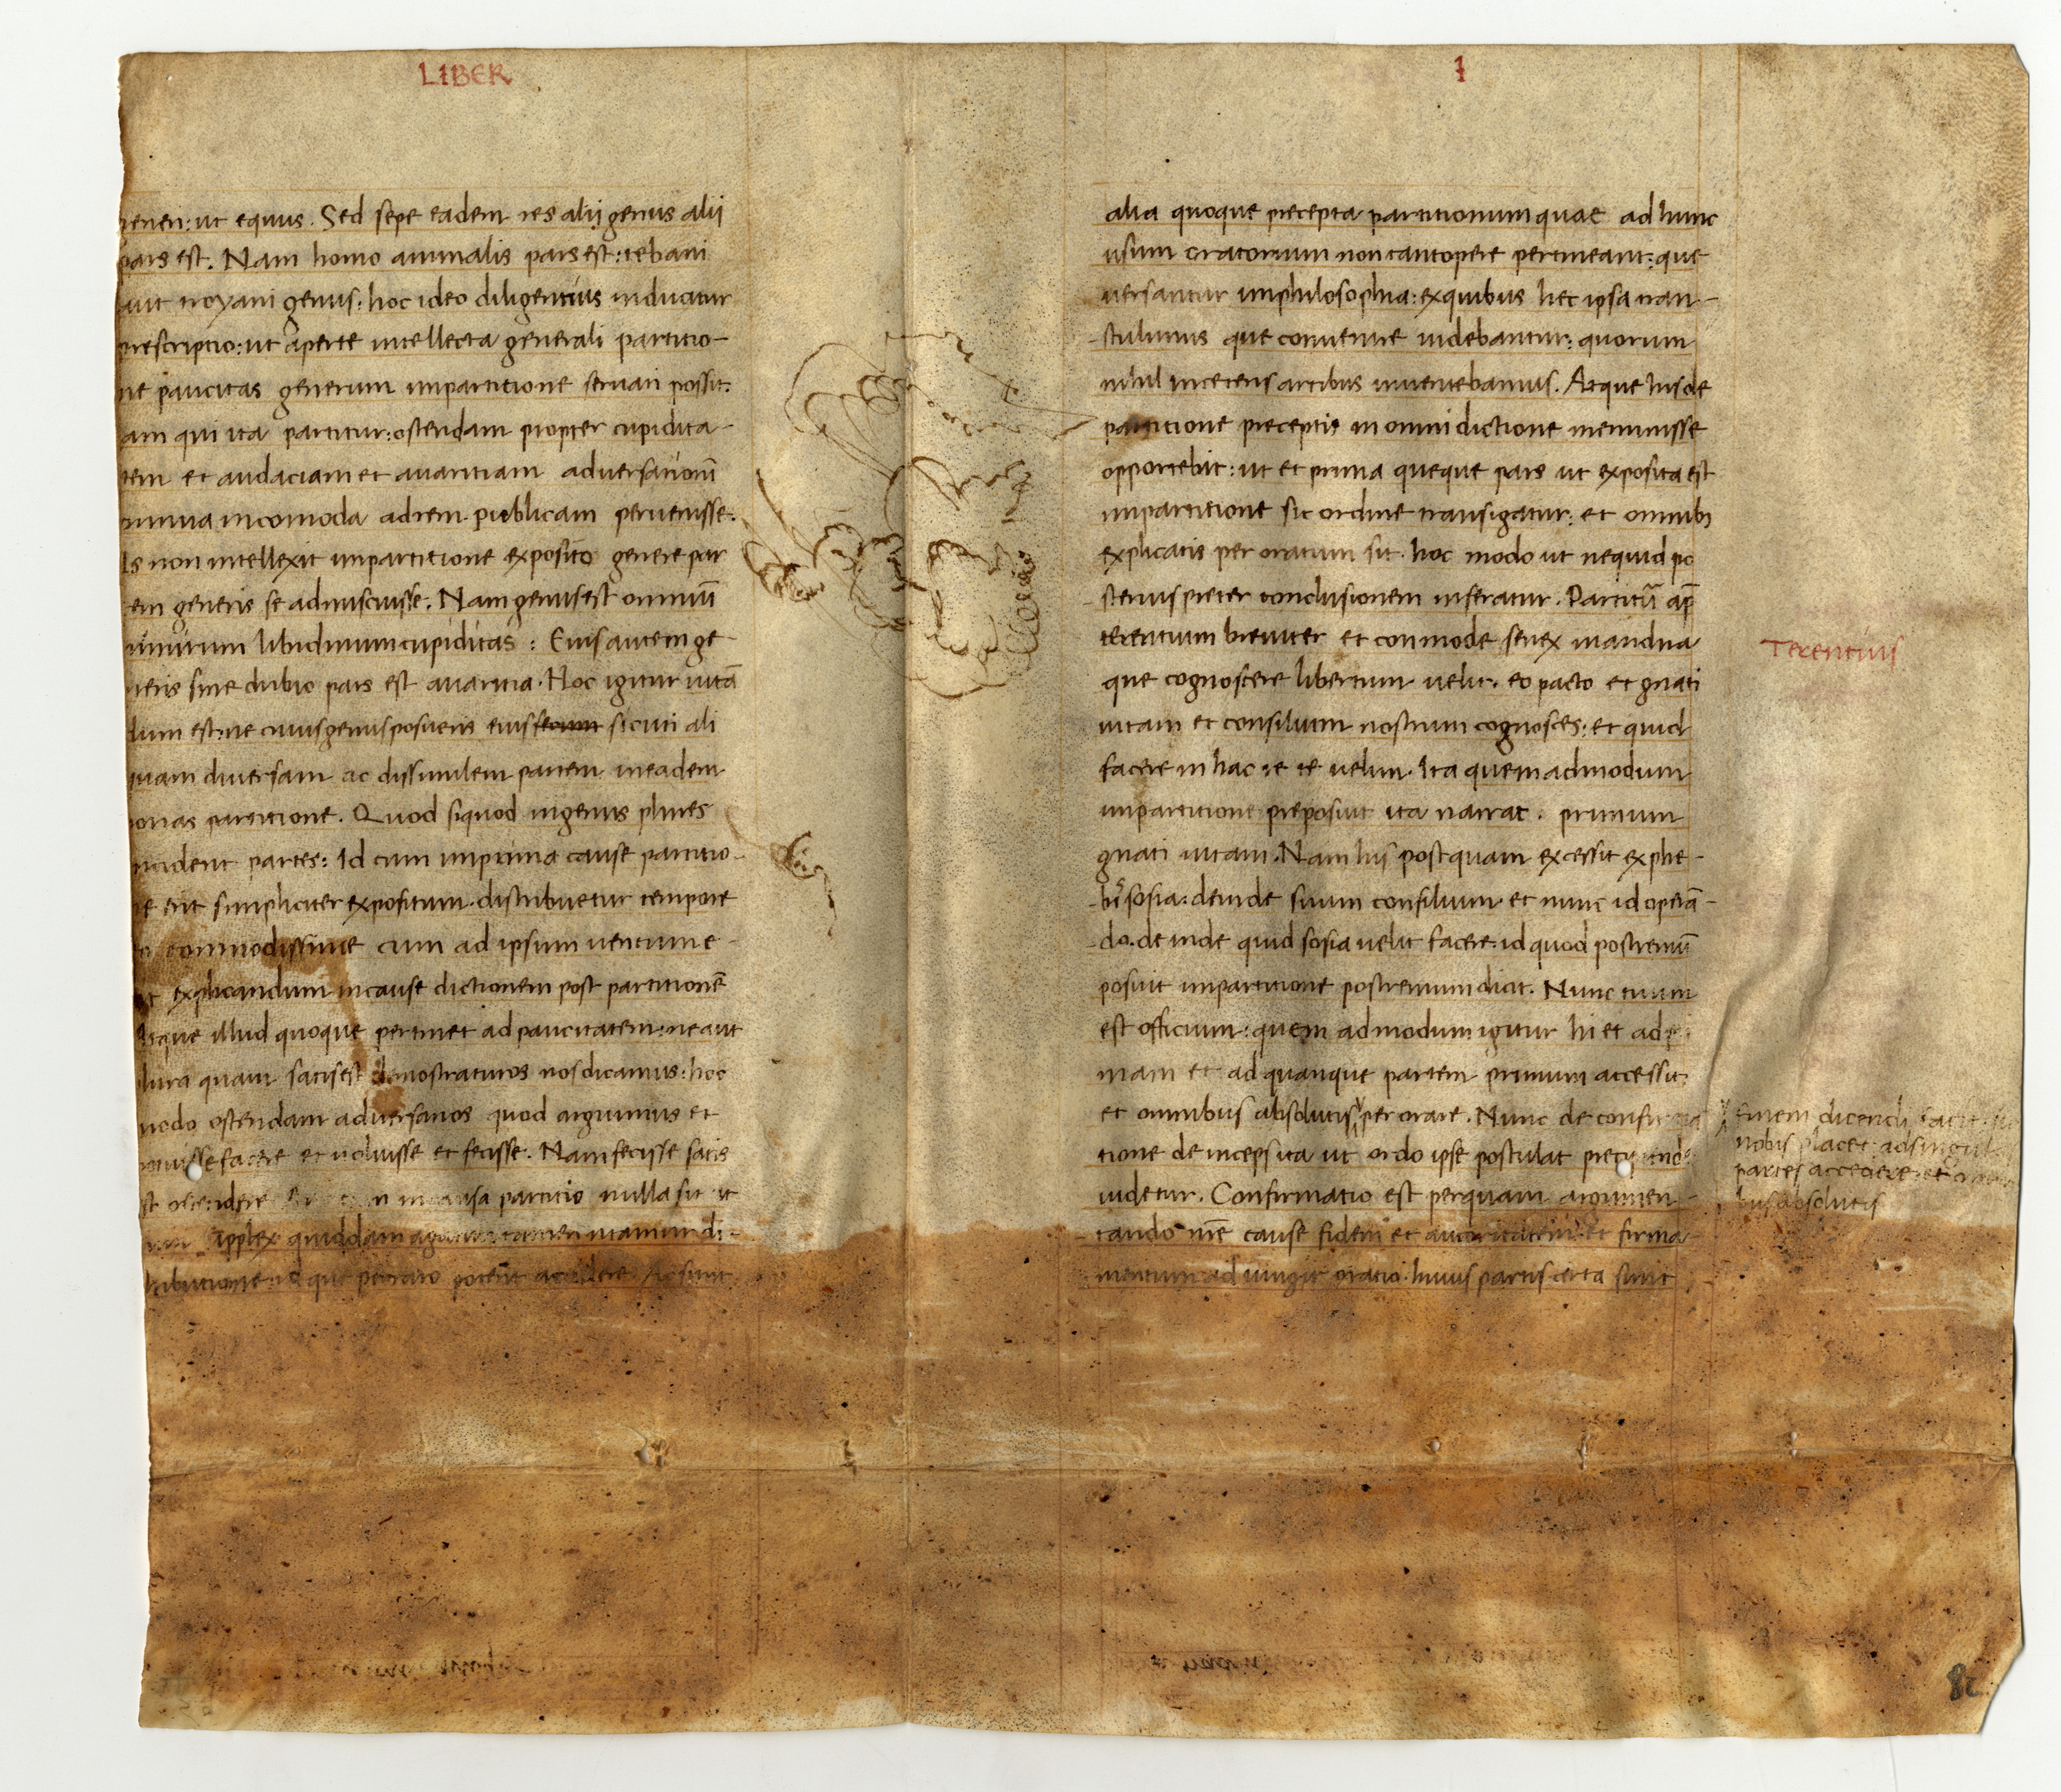 LIBER
generi: ut equus. Sed sepe eadem res alij genus alii
pars est. Nam homo animalis pars est: tebani
aut troyani genus. hoc ideo diligentius inducitur
prescriptio: ut aperte intellecta generali partitio-
ne paucitas generum inpartitione seruari possit.
am qui ita partitur: ostendam propter cupidita-
tem et audaciam et auaritiam aduersariorū
omnia incomoda adrem publicam peruenisse.
Is non intellexit inpartitione exposito genere par
em generis se admiscuisse. Nam genus est omniū
libidinum cupiditas: Eius autem ge
neris sine dubio pars est auaritia. Hoc igitur uitā
dum est: ne cuius genus posueris eius sicuti ali
quam diuersam ac dissimilem partem ineadem
ponas partitione. Quod siquod ingenus plures
incident partes: Id cum inprima cause partitio-
ne erit simpliciter expositum. distribuetur tempore
commodissime cum ad ipsum uentum e-
explicandum incause dictionem post partitionē
Atque illud quoque pertinet ad paucitatem: ne aut
plura quam satis est demostraturos nos dicamus: hoc
modo ostendam aduersarios quod arguimus et
potuisse facere et uoluisse et fecisse. Nam fecisse satis
st ostendere incausa partitio nulla sit ut
quiddam agatur tamen utamur di-
stributione: id que perraro potest accidere Ac sunt
I
alia quoque precepta partitionum quae ad hunc
usum oratorium non tantopere pertineant: que
uersantur inphilosophia: ex quibus hec ipsa tran-
stulimus que conuenire uidebantur: quorum
nihil inceteris artibus inueniebamus. Atque his de
partitione preceptis in omni dictione meminisse
opportebit: ut et prima queque pars ut exposita est
inpartitione sic ordine transigatur: et omnibꝫ
explicatis per oratum sit. hoc modo ut nequid po
sterius preter conclusionem inferatur. Partitur ap̄
terentium breuiter et conmode senex inandria
que cognoscere libertum uelit. eo pacto et gnati
uitam et consilium nostrum cognosces: et quid
facere in hac re te uelim. Ita quemadmodum
inpartitione preposiut ita narrat. primum
gnati uitam. Nam his postquam excessit ex phe-
bis sosia: deinde suum consilium et nunc id operā-
do. deinde quid sosia uelit facere. id quod postremū
posuit inpartitione postremum dicit. Nunc tuum
est officium: quem ad modum igitur hi et ad
mam et ad quanque partem primum accessit.
et omnibus absolutis perorare. Nunc de confirma
tione deinceps ita ut ordo ipse postulat
uidetur. Confirmatio est perquam argumen-
tando nr̄e cause fidem et auctoritatem et firma-
mentum ad iungit oratio. huius partis certa sunt
Terentius
finem dicendi facit. sic
nobis placet adsingulas
partes accedere. et omni
bus absolutis
82